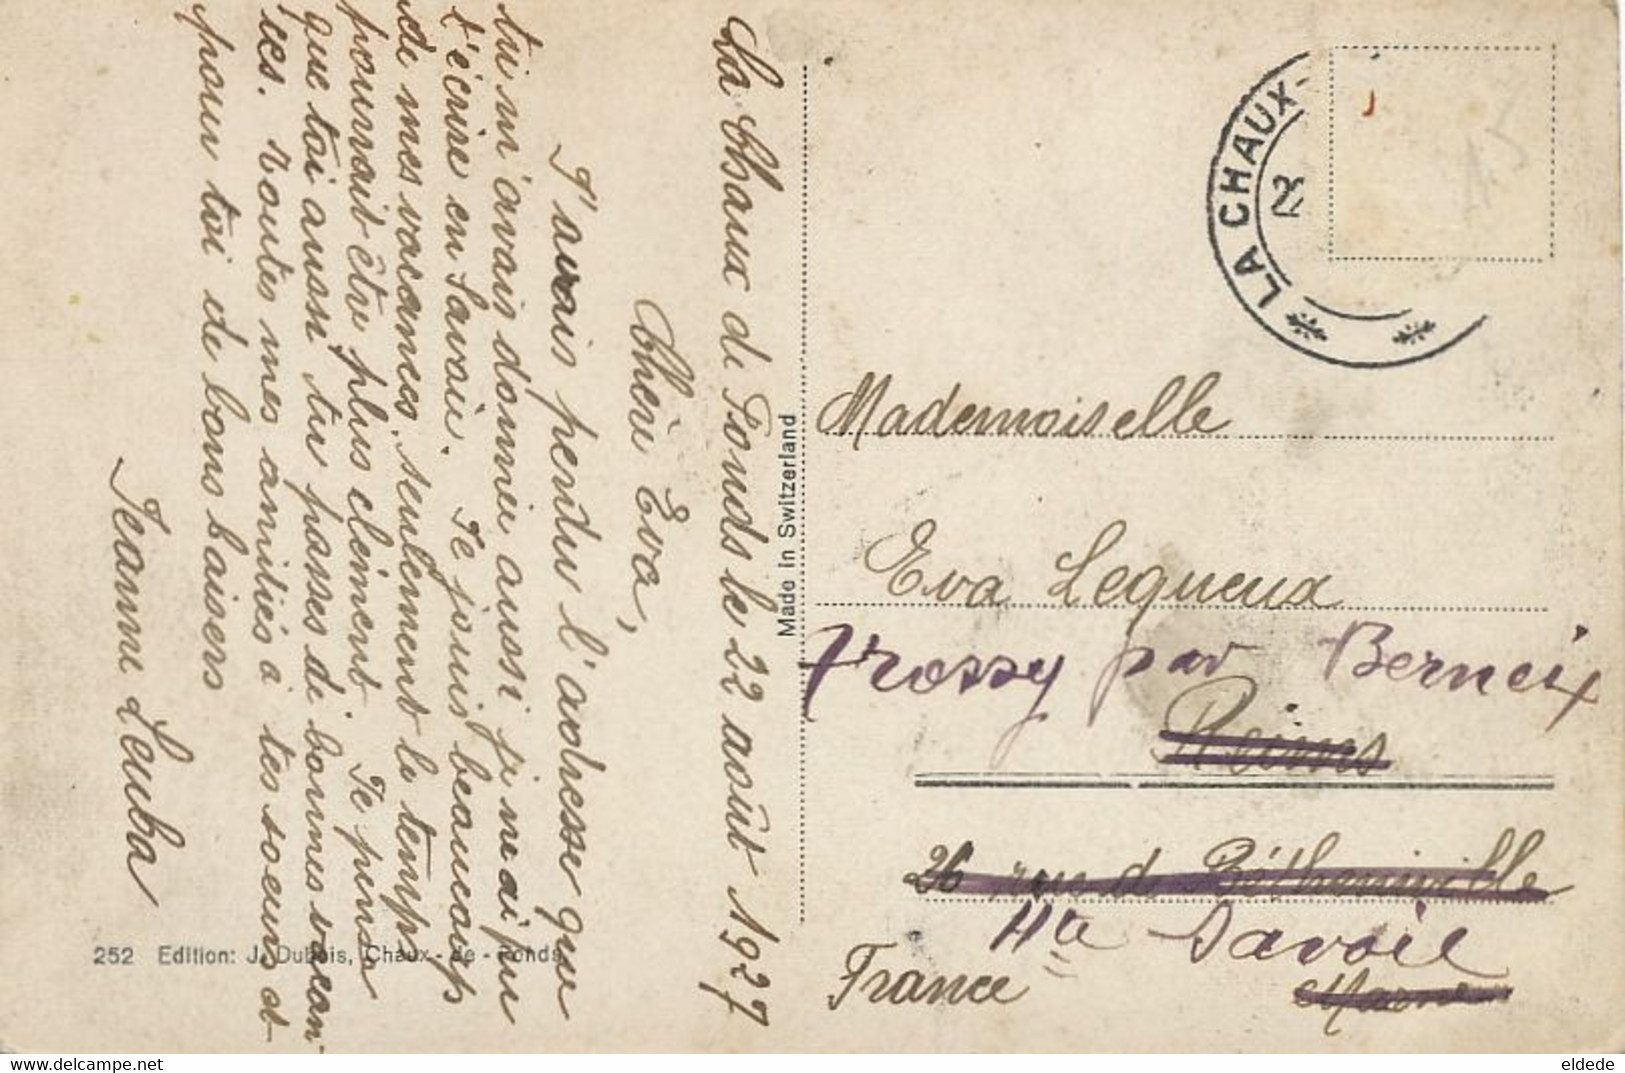 La Chaux de Fonds le 22 août 1927
Chère Eva,
J'avais perdu l'adresse que
tu m'avais donnée aussi je n'ai pu
t'écrire en Savoie. Je jouis beaucoup
de mes vacances, seulement le temps
pourrait être plus clément. Je pense
que toi aussi tu passes de bonnes vacan-
ces. Toutes mes amitiés à tes soeurs et
pour toi de bons baisers
Jeanne Leuba
Made in Switzerland
252 Edition: J. Dubois, Chaux-de-Fonds
LA CHAUX-
Mademoiselle
Eva Lequeux
Trossy par Berneix
Reims
26 rue de Bétheniville
Hte Savoie
France
Marne
eldede